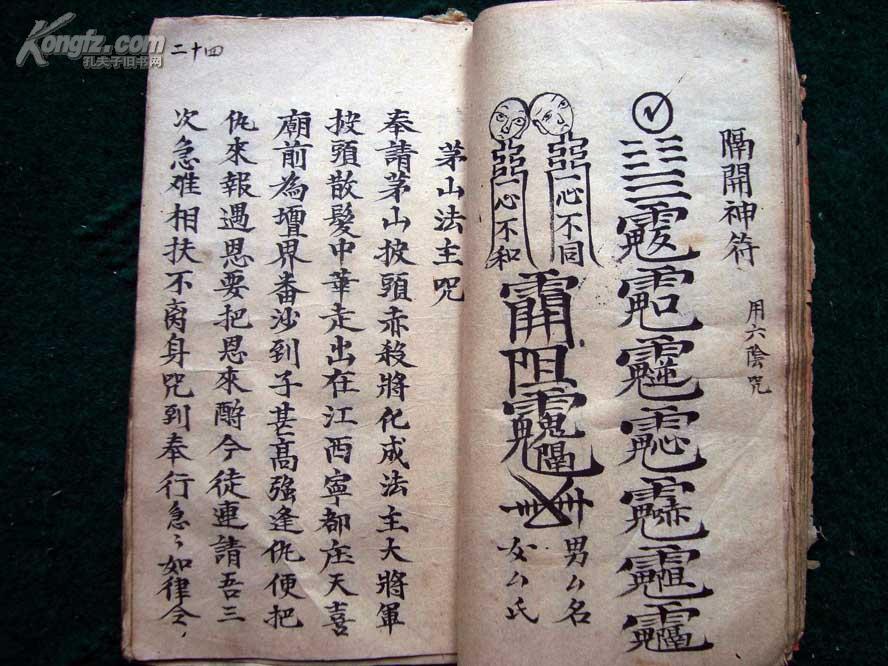 隔開神符
用六陰咒
一心不同
一心不和
男厶名
女厶氏
茅山法主咒
奉請茅山披頭赤殺將化成法主大將軍
披頭散髮中華走出在江西寧都庄天喜
廟前為壇界畨沙到子甚高强逢仇便把
仇來報遇恩要把恩來酧今徒連請吾三
次急难相扶不离身咒到奉行急〻如律令
二十四
Kongfz.com
孔夫子旧书网